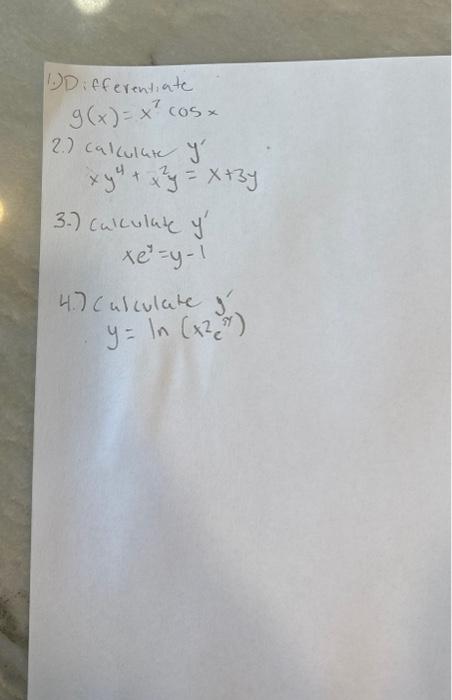 1.) Differentiate
g(x) = x⁷ cos x
2.) calculate y'
xy⁴ + x²y = x+3y
3.) calculate y'
xeʸ = y-1
4.) calculate y'
y = ln (x²e )